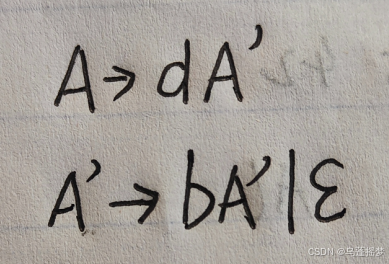 A→dA'
A'→bA'|ε
CSDN @乌蓬摇梦